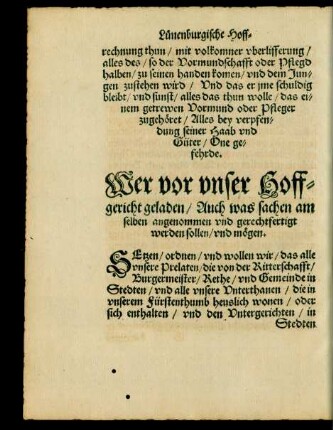 Lünenburgische Hoff-
rechnung thun / mit volkomner vberlifferung /
alles des / so der Vormundschafft oder Pflegd
halben / zu seinen handen komen / vnd dem Jun-
gen zustehen wird / Vnd das er jme schuldig
bleibt / vnd sunst / alles das thun wolle / das ei-
nem getrewen Vormund oder Pfleger
zugehöret / Alles bey verpfen-
dung seiner Haab vnd
Güter / One ge-
fehrde.
Wer vor vnser Hoff-
gericht geladen / Auch was sachen am
selben angenommen vnd gerechtfertigt
werden sollen / vnd mögen.
SEtzen / ordnen / vnd wollen wir / das alle
vnsere Prelaten / die von der Ritterschafft /
Burgermeister / Rethe / vnd Gemeinde in
Stedten / vnd alle vnsere Vnterthanen / die in
vnserem Fürstenthumb heuslich wonen / oder
sich enthalten / vnd den Vntergerichten / in
Stedten